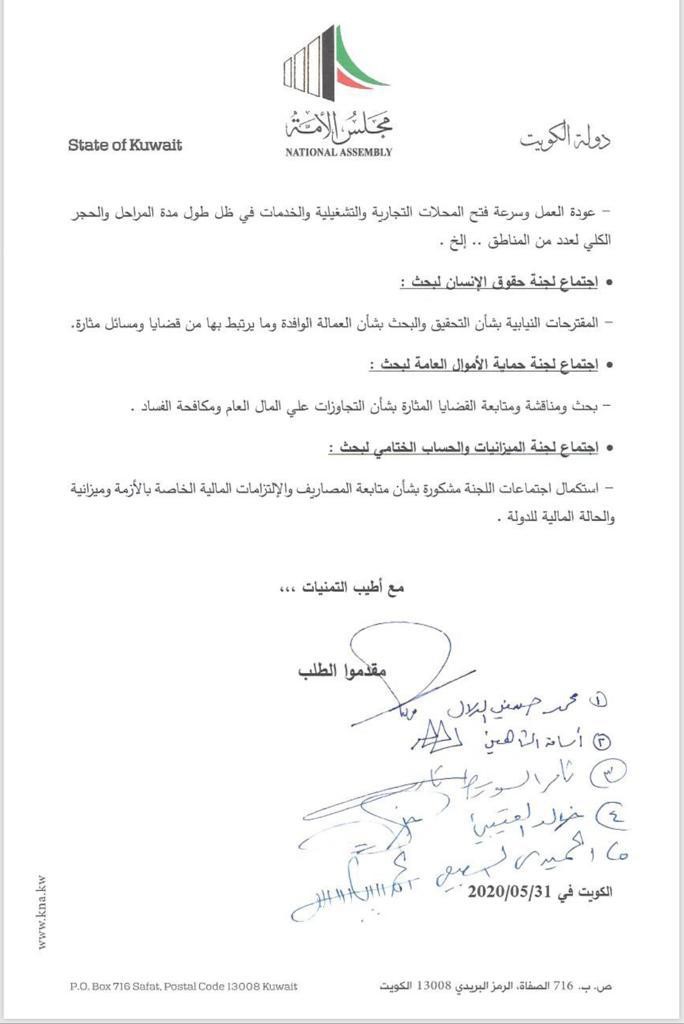 مجلس الأمة
NATIONAL ASSEMBLY
State of Kuwait
دولة الكويت
– عودة العمل وسرعة فتح المحلات التجارية والتشغيلية والخدمات في ظل طول مدة المراحل والحجر
الكلي لعدد من المناطق .. إلخ .
• اجتماع لجنة حقوق الإنسان لبحث :
– المقترحات النيابية بشأن التحقيق والبحث بشأن العمالة الوافدة وما يرتبط بها من قضايا ومسائل مثارة.
• اجتماع لجنة حماية الأموال العامة لبحث :
– بحث ومناقشة ومتابعة القضايا المثارة بشأن التجاوزات علي المال العام ومكافحة الفساد .
• اجتماع لجنة الميزانيات والحساب الختامي لبحث :
– استكمال اجتماعات اللجنة مشكورة بشأن متابعة المصاريف والإلتزامات المالية الخاصة بالأزمة وميزانية
والحالة المالية للدولة .
مع أطيب التمنيات ،،،
مقدموا الطلب
١ محمد حسين الدلال
٢ أسامة الشاهين
٣ ثامر السويط
٤ خالد العتيبي
٥ الحميدي السبيعي
الكويت في 2020/05/31
www.kna.kw
P.O. Box 716 Safat, Postal Code 13008 Kuwait
ص. ب. 716 الصفاة، الرمز البريدي 13008 الكويت